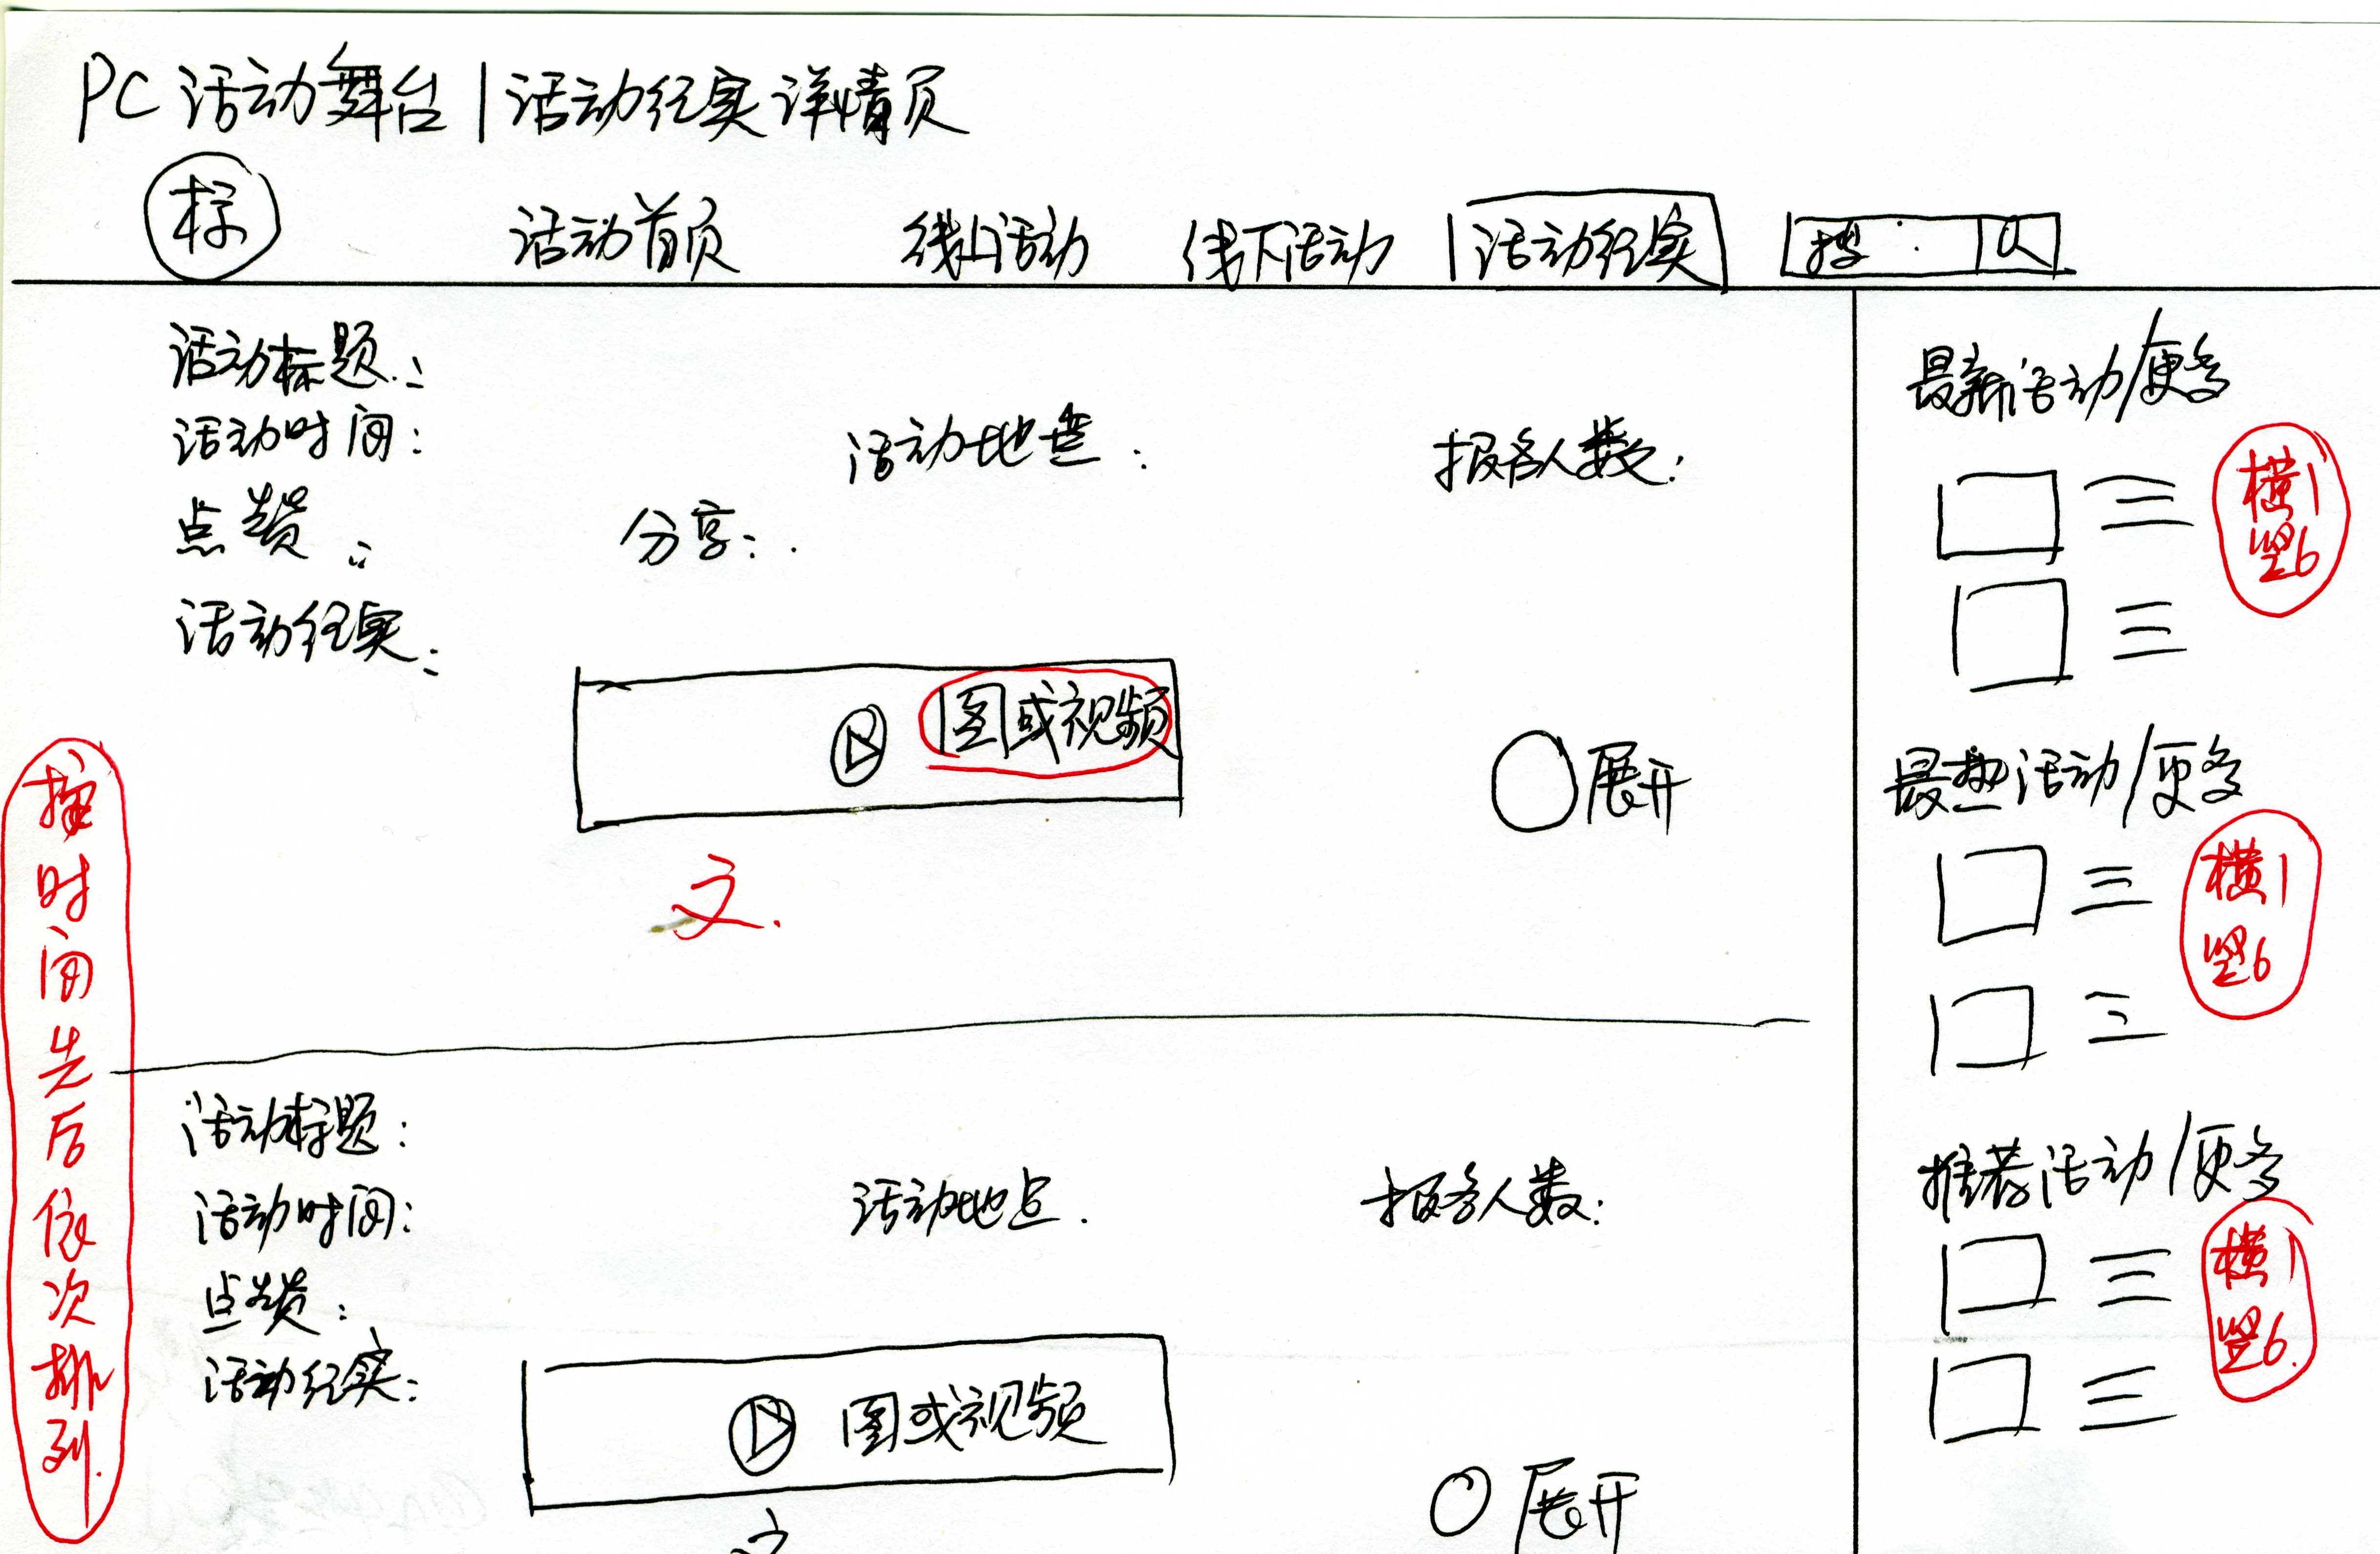 PC 活动舞台 | 活动纪实详情页
标 活动首页 线上活动 线下活动 活动纪实 搜:
活动标题:
活动时间: 活动地点: 报名人数:
点赞: 分享:
活动纪实:
图或视频
展开
文.
活动标题:
活动时间: 活动地点. 报名人数:
点赞:
活动纪实:
图或视频
展开
文
按时间先后依次排列.
最新活动/更多
横1
竖6
最热活动/更多
横1
竖6
推荐活动/更多
横1
竖6.